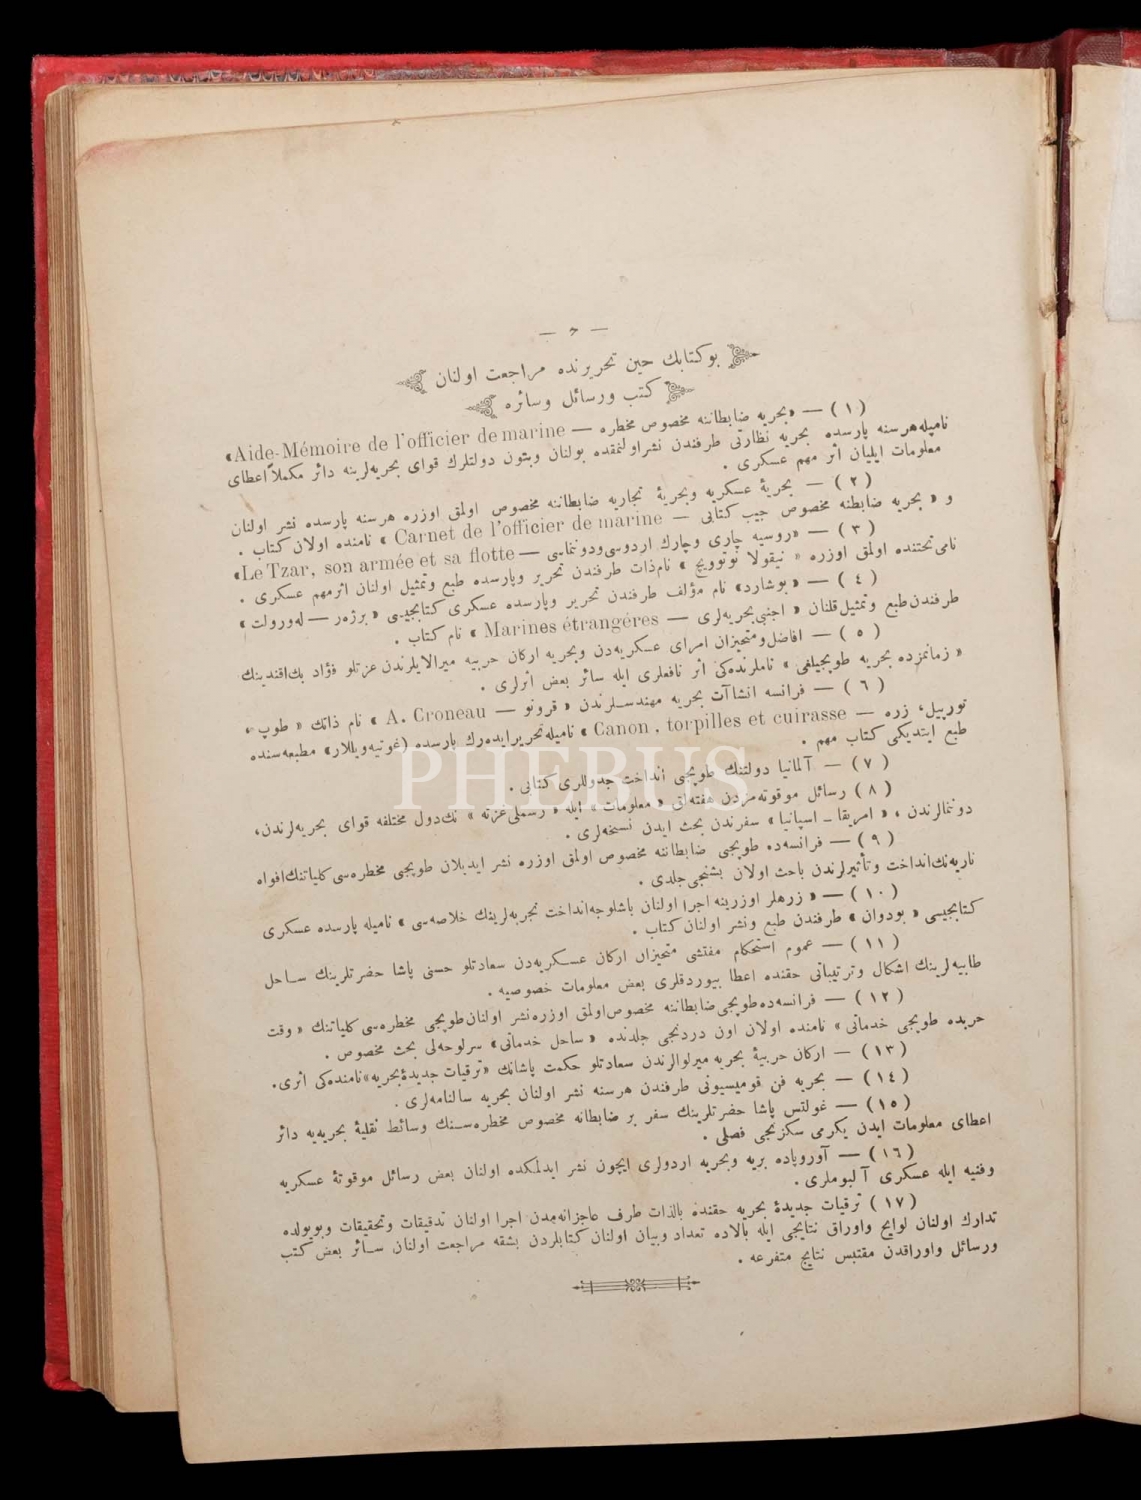 — ح —
بوكتابك حین تحریرنده مراجعت اولنان
كتب ورسائل وسائره
(١) — «بحریه ضابطاننه مخصوص مخطره — Aide-Mémoire de l'officier de marine»
نامیله هرسنه پارسده بحریه نظارتی طرفندن نشر اولنمقده بولنان وبتون دولتلرك قوای بحریه‌لرینه دائر مكملاً اعطای
معلومات ایلیان اثر مهم عسكری .
(٢) — بحریهٔ عسكریه وبحریهٔ تجاریه ضابطاننه مخصوص اولمق اوزره هرسنه پارسده نشر اولنان
و « بحریه ضابطنه مخصوص جیب كتابی — Carnet de l'officier de marine » نامنده اولان كتاب .
(٣) — «روسیه چاری وچارك اردوسی ودوننماسی — Le Tzar, son armée et sa flotte»
نامی تحتنده اولمق اوزره « نیقولا نوتوویچ » نام ذات طرفندن تحریر وپارسده طبع وتمثیل اولنان اثر مهم عسكری .
(٤) — «بوشارد» نام مؤلف طرفندن تحریر وپارسده عسكری كتابجیسی « برژه‌ر — له‌ورولت »
طرفندن طبع وتمثیل قلنان « اجنبی بحریه‌لری — Marines étrangéres » نام كتاب .
(٥) — افاضل ومتحیزان امرای عسكریه‌دن وبحریه اركان حربیه میرالایلرندن عزتلو فؤاد بك افندینك
« زمانمزده بحریه طوپجیلغی » ناملرنده‌كی اثر نافعلری ایله سائر بعض اثرلری .
(٦) — فرانسه انشاآت بحریه مهندسلرندن « قرونو — A. Croneau » نام ذاتك « طوپ ،
تورپیل، زره — Canon, torpilles et cuirasse » نامیله تحریر ایده‌رك پارسده (غوتیه ویللار) مطبعه‌سنده
طبع ایتدیكی كتاب مهم .
(٧) — آلمانیا دولتنك طوپجی انداخت جدوللری كتابی .
(٨) رسائل موقوته‌مزدن هفته‌لق « معلومات » ایله « رسملی غزته » نك دول مختلفه قوای بحریه‌لرندن،
دوننمالرندن ، « امریقا ـ اسپانیا » سفرندن بحث ایدن نسخه‌لری .
(٩) — فرانسه‌ده طوپجی ضابطاننه مخصوص اولمق اوزره نشر ایدیلان طوپجی مخطره‌سی كلیاتنك افواه
ناریه‌نك انداخت وتأثیرلرندن باحث اولان بشنجی جلدی .
(١٠) — « زرهلر اوزرینه اجرا اولنان باشلوجه انداخت تجربه‌لرینك خلاصه‌سی » نامیله پارسده عسكری
كتابجیسی « بودوان » طرفندن طبع ونشر اولنان كتاب .
(١١) — عموم استحكام مفتشی متحیزان اركان عسكریه‌دن سعادتلو حسنی پاشا حضرتلرینك ساحل
طابیه‌لرینك اشكال وترتیباتی حقنده اعطا بیوردقلری بعض معلومات خصوصیه .
(١٢) — فرانسه‌ده طوپجی ضابطاننه مخصوص اولمق اوزره نشر اولنان طوپجی مخطره‌سی كلیاتنك « وقت
حربده طوپجی خدماتی » نامنده اولان اون دردنجی جلدنده « ساحل خدماتی » سرلوحه‌لی بحث مخصوص .
(١٣) — اركان حربیهٔ بحریه میرلوالرندن سعادتلو حكمت پاشانك «ترقیات جدیدهٔ بحریه» نامنده‌كی اثری.
(١٤) — بحریه فن قومیسیونی طرفندن هرسنه نشر اولنان بحریه سالنامه‌لری .
(١٥) — غولتس پاشا حضرتلرینك سفر بر ضابطانه مخصوص مخطره‌سنك وسائط نقلیهٔ بحریه‌یه دائر
اعطای معلومات ایدن یكرمی سكزنجی فصلی .
(١٦) — آوروپاده بریه وبحریه اردولری ایچون نشر ایدلمكده اولنان بعض رسائل موقوتهٔ عسكریه
وفنیه ایله عسكری آلبوملری .
(١٧) ترقیات جدیدهٔ بحریه حقنده بالذات طرف عاجزانه‌مدن اجرا اولنان تدقیقات وتحقیقات وبویولده
تدارك اولنان لوایح واوراق نتایجی ایله بالاده تعداد وبیان اولنان كتابلردن بشقه مراجعت اولنان سائر بعض كتب
ورسائل واوراقدن مقتبس نتایج متفرعه .
PHEBUS